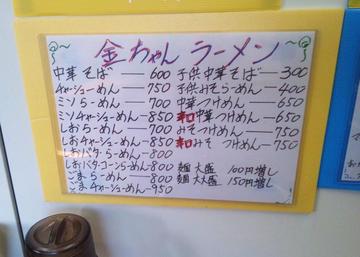 金ちゃんラーメン
中華そば 600
チャーシューめん 750
ミソらーめん 700
ミソチャーシューめん 850
しおらーめん 700
しおチャーシューめん 850
しおバターらーめん 800
しおバターコーンらーめん 800
ごまらーめん 800
ごまチャーシューめん 950
子供中華そば 300
子供みそらーめん 400
中華つけめん 650
和中華つけめん 650
みそつけめん 750
和みそつけめん 750
麺大盛 100円増し
麺大大盛 150円増し